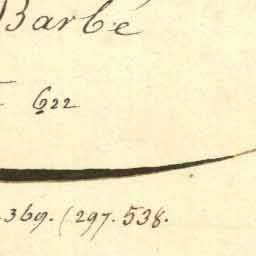 Barbé
622
369. (297. 538.